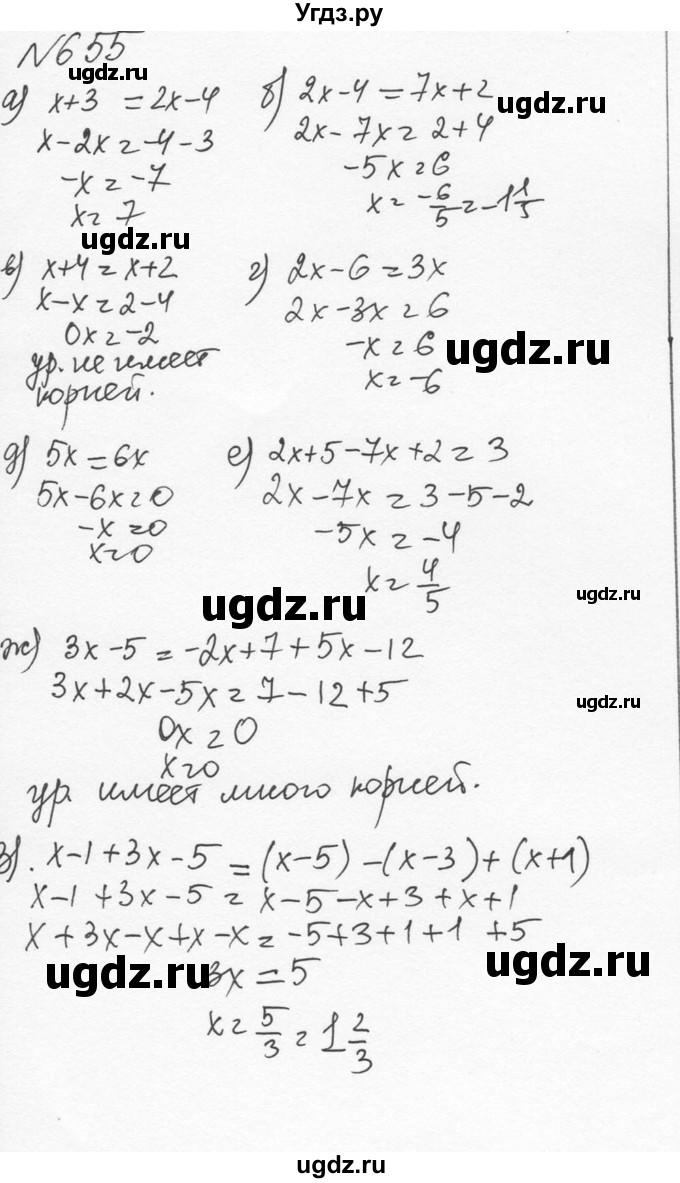 Угдз.ру
№655
ugdz.ru
а) x+3 = 2x-4
x-2x = -4-3
-x = -7
x = 7
ugdz.ru
б) 2x-4 = 7x+2
ugdz.ru
2x-7x = 2+4
-5x = 6
x = -6/5 = -1 1/5
в) x+4 = x+2
x-x = 2-4
0x = -2
ур. не имеет
корней.
г) 2x-6 = 3x
2x-3x = 6
-x = 6
ugdz.ru
x = -6
д) 5x = 6x
5x-6x = 0
-x = 0
x = 0
е) 2x+5-7x+2 = 3
2x-7x = 3-5-2
-5x = -4
x = 4/5
ugdz.ru
ugdz.ru
ж) 3x-5 = -2x+7+5x-12
3x+2x-5x = 7-12+5
ugdz.ru
0x = 0
x = 0
ур. имеет много корней.
з). x-1+3x-5 = (x-5)-(x-3)+(x+1)
x-1+3x-5 = x-5-x+3+x+1
x+3x-x+x-x = -5+3+1+1+5
ugdz.ru
3x = 5
ugdz.ru
x = 5/3 = 1 2/3
ugdz.ru